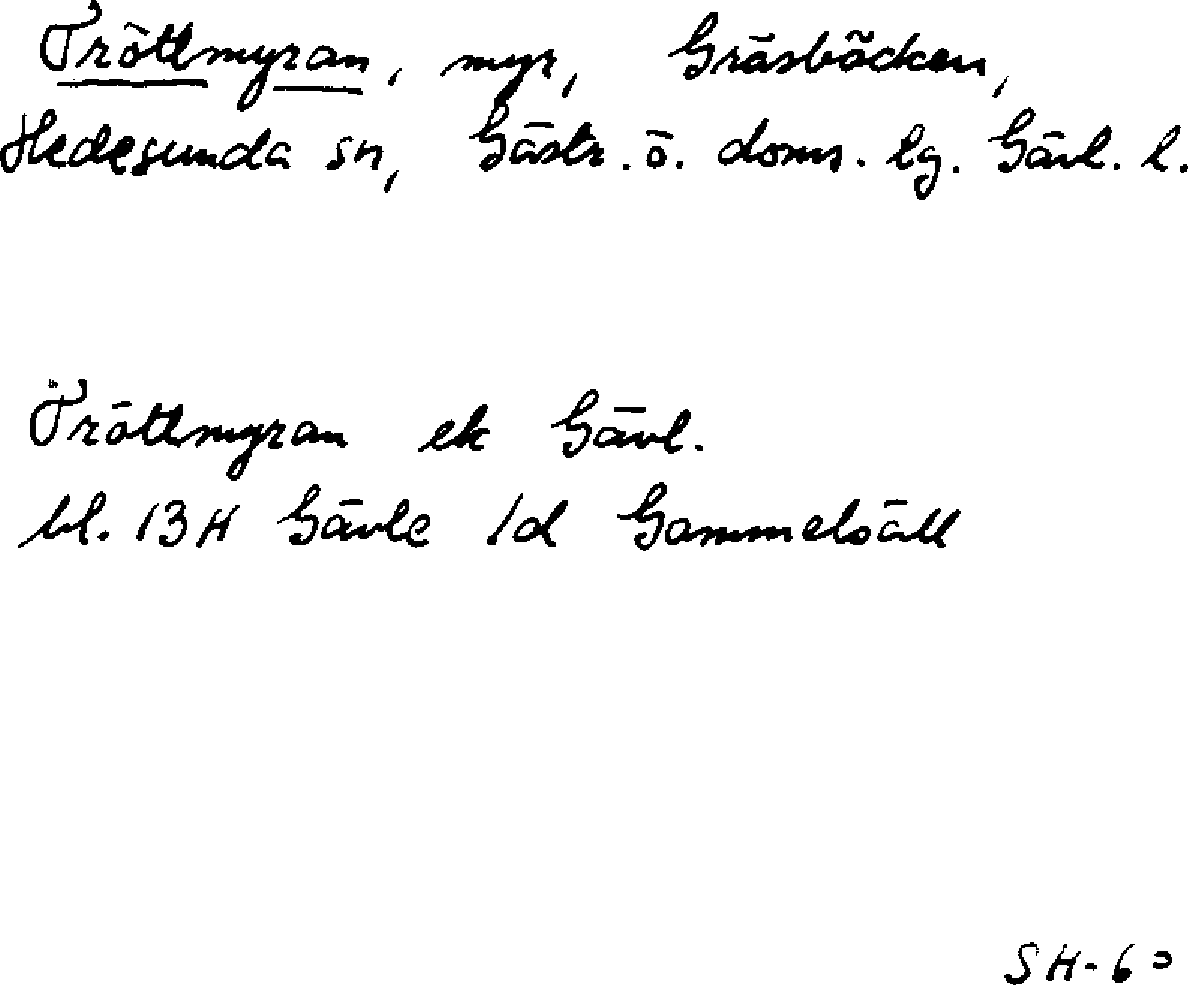 Tröttmyran, myr, Gräsbäcken,
Hedesunda sn, Gästr. ö. doms. lg. Gävl. l.
Tröttmyran ek Gävl.
bl. 13H Gävle 1d Gammelsäll
SH-60